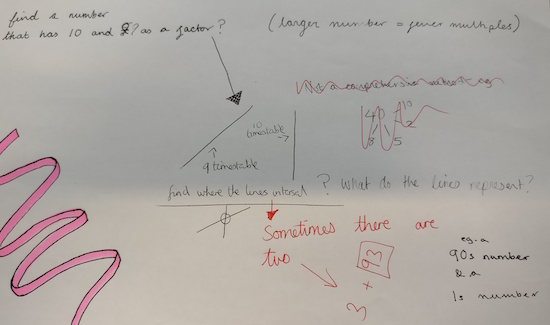 find a number
that has 10 and ? as a factor?
(larger number = fewer multiples)
10
timestable
→
9 timestable
find where the lines intersal ? What do the lines represent?
Sometimes there are
two
93
+
3
eg. a
90s number
& a
1s number